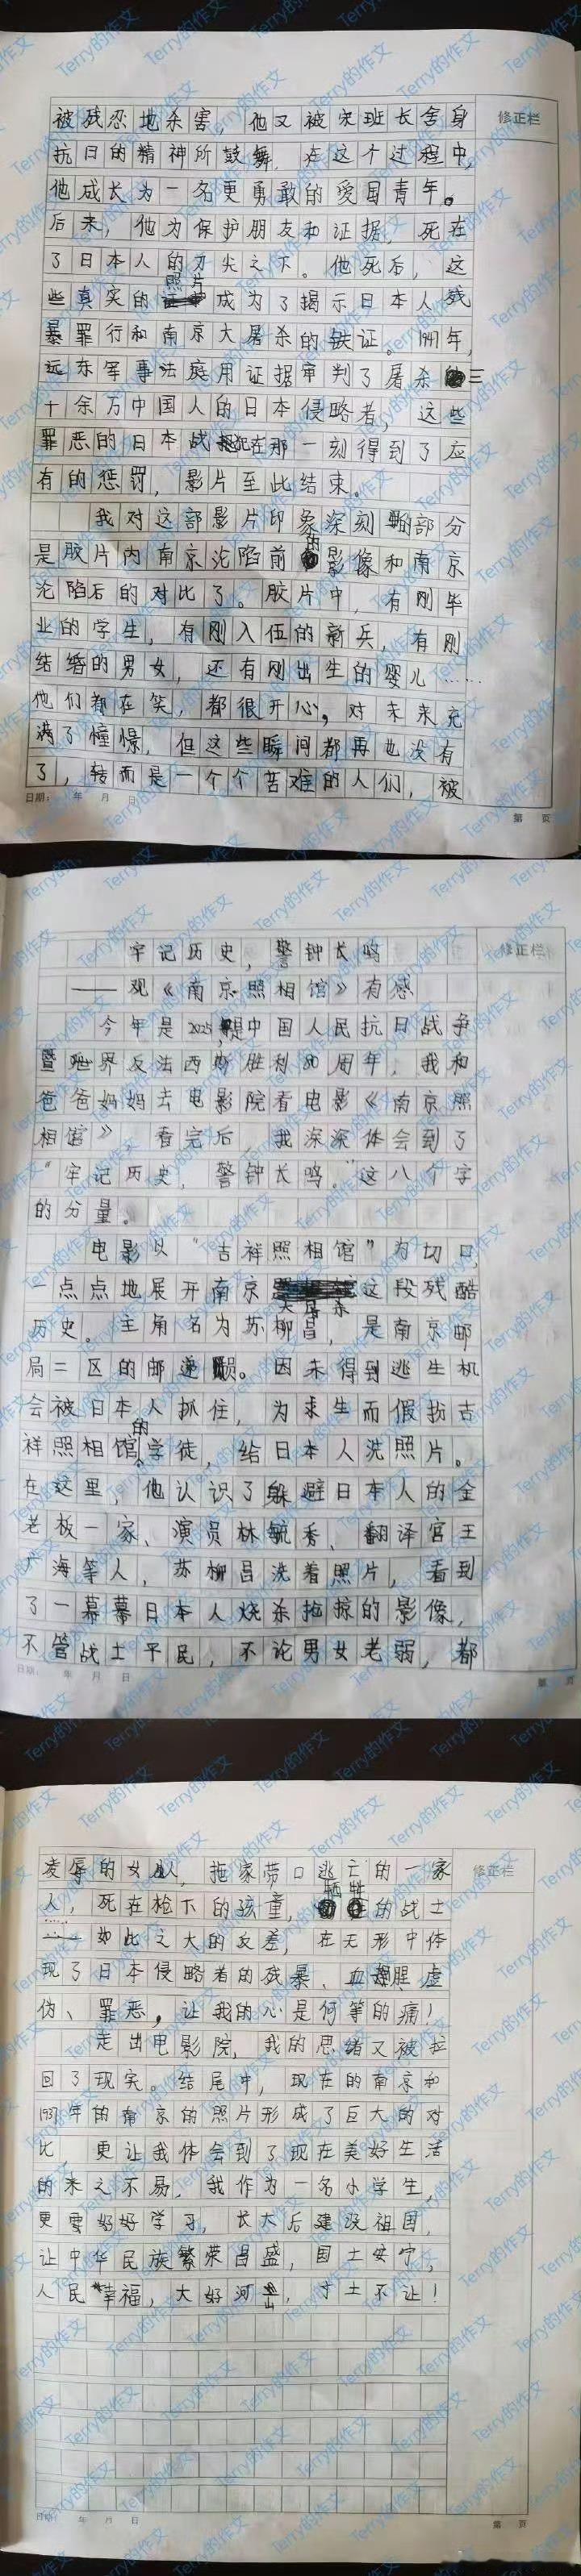 被残忍地杀害，他又被宋班长舍身
修正栏
抗日的精神所鼓舞，在这个过程中，
他成长为一名更勇敢的爱国青年。
后来，他为保护朋友和证据，死在
了日本人的刀尖之下。他死后，这
些真实的照片成为了揭示日本人残
暴罪行和南京大屠杀的铁证。1947年，
远东军事法庭用证据审判了屠杀三
十余万中国人的日本侵略者，这些
罪恶的日本战犯在那一刻得到了应
有的惩罚，影片至此结束。
我对这部影片印象深刻的部分
是胶片内南京沦陷前的影像和南京
沦陷后的对比了。胶片中，有刚毕
业的学生，有刚入伍的新兵，有刚
结婚的男女，还有刚出生的婴儿……
他们都在笑，都很开心，对未来充
满了憧憬，但这些瞬间都再也没有
了，转而是一个个苦难的人们，被
日期： 年 月 日
第 页
牢记历史，警钟长鸣
修正栏
——观《南京照相馆》有感
今年是2025，是中国人民抗日战争
暨世界反法西斯胜利80周年，我和
爸爸妈妈去电影院看电影《南京照
相馆》，看完后，我深深体会到了
“牢记历史，警钟长鸣。”这八个字
的分量。
电影以“吉祥照相馆”为切口，
一点点地展开南京大屠杀这段残酷
历史。主角名为苏柳昌，是南京邮
局二区的邮递员。因未得到逃生机
会被日本人抓住，为求生而假扮吉
祥照相馆的学徒，给日本人洗照片。
在这里，他认识了躲避日本人的金
老板一家、演员林毓秀、翻译官王
广海等人，苏柳昌洗着照片，看到
了一幕幕日本人烧杀抢掠的影像，
不管战士平民，不论男女老弱，都
日期： 年 月 日
第 页
凌辱的女人，拖家带口逃亡的一家
修正栏
人，死在枪下的孩童，牺牲的战士
……如此之大的反差，在无形中体
现了日本侵略者的残暴、血腥、虚
伪、罪恶，让我的心是何等的痛！
走出电影院，我的思绪又被拉
回了现实。结尾中，现在的南京和
1937年的南京的照片形成了巨大的对
比，更让我体会到了现在美好生活
的来之不易，我作为一名小学生，
更要好好学习，长大后建设祖国，
让中华民族繁荣昌盛，国土安宁，
人民幸福，大好河山，寸土不让！
日期： 年 月 日
第 页
Terry的作文